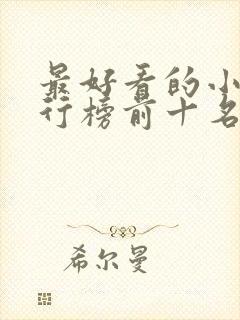 最好看的小
行榜前十名
希尔曼